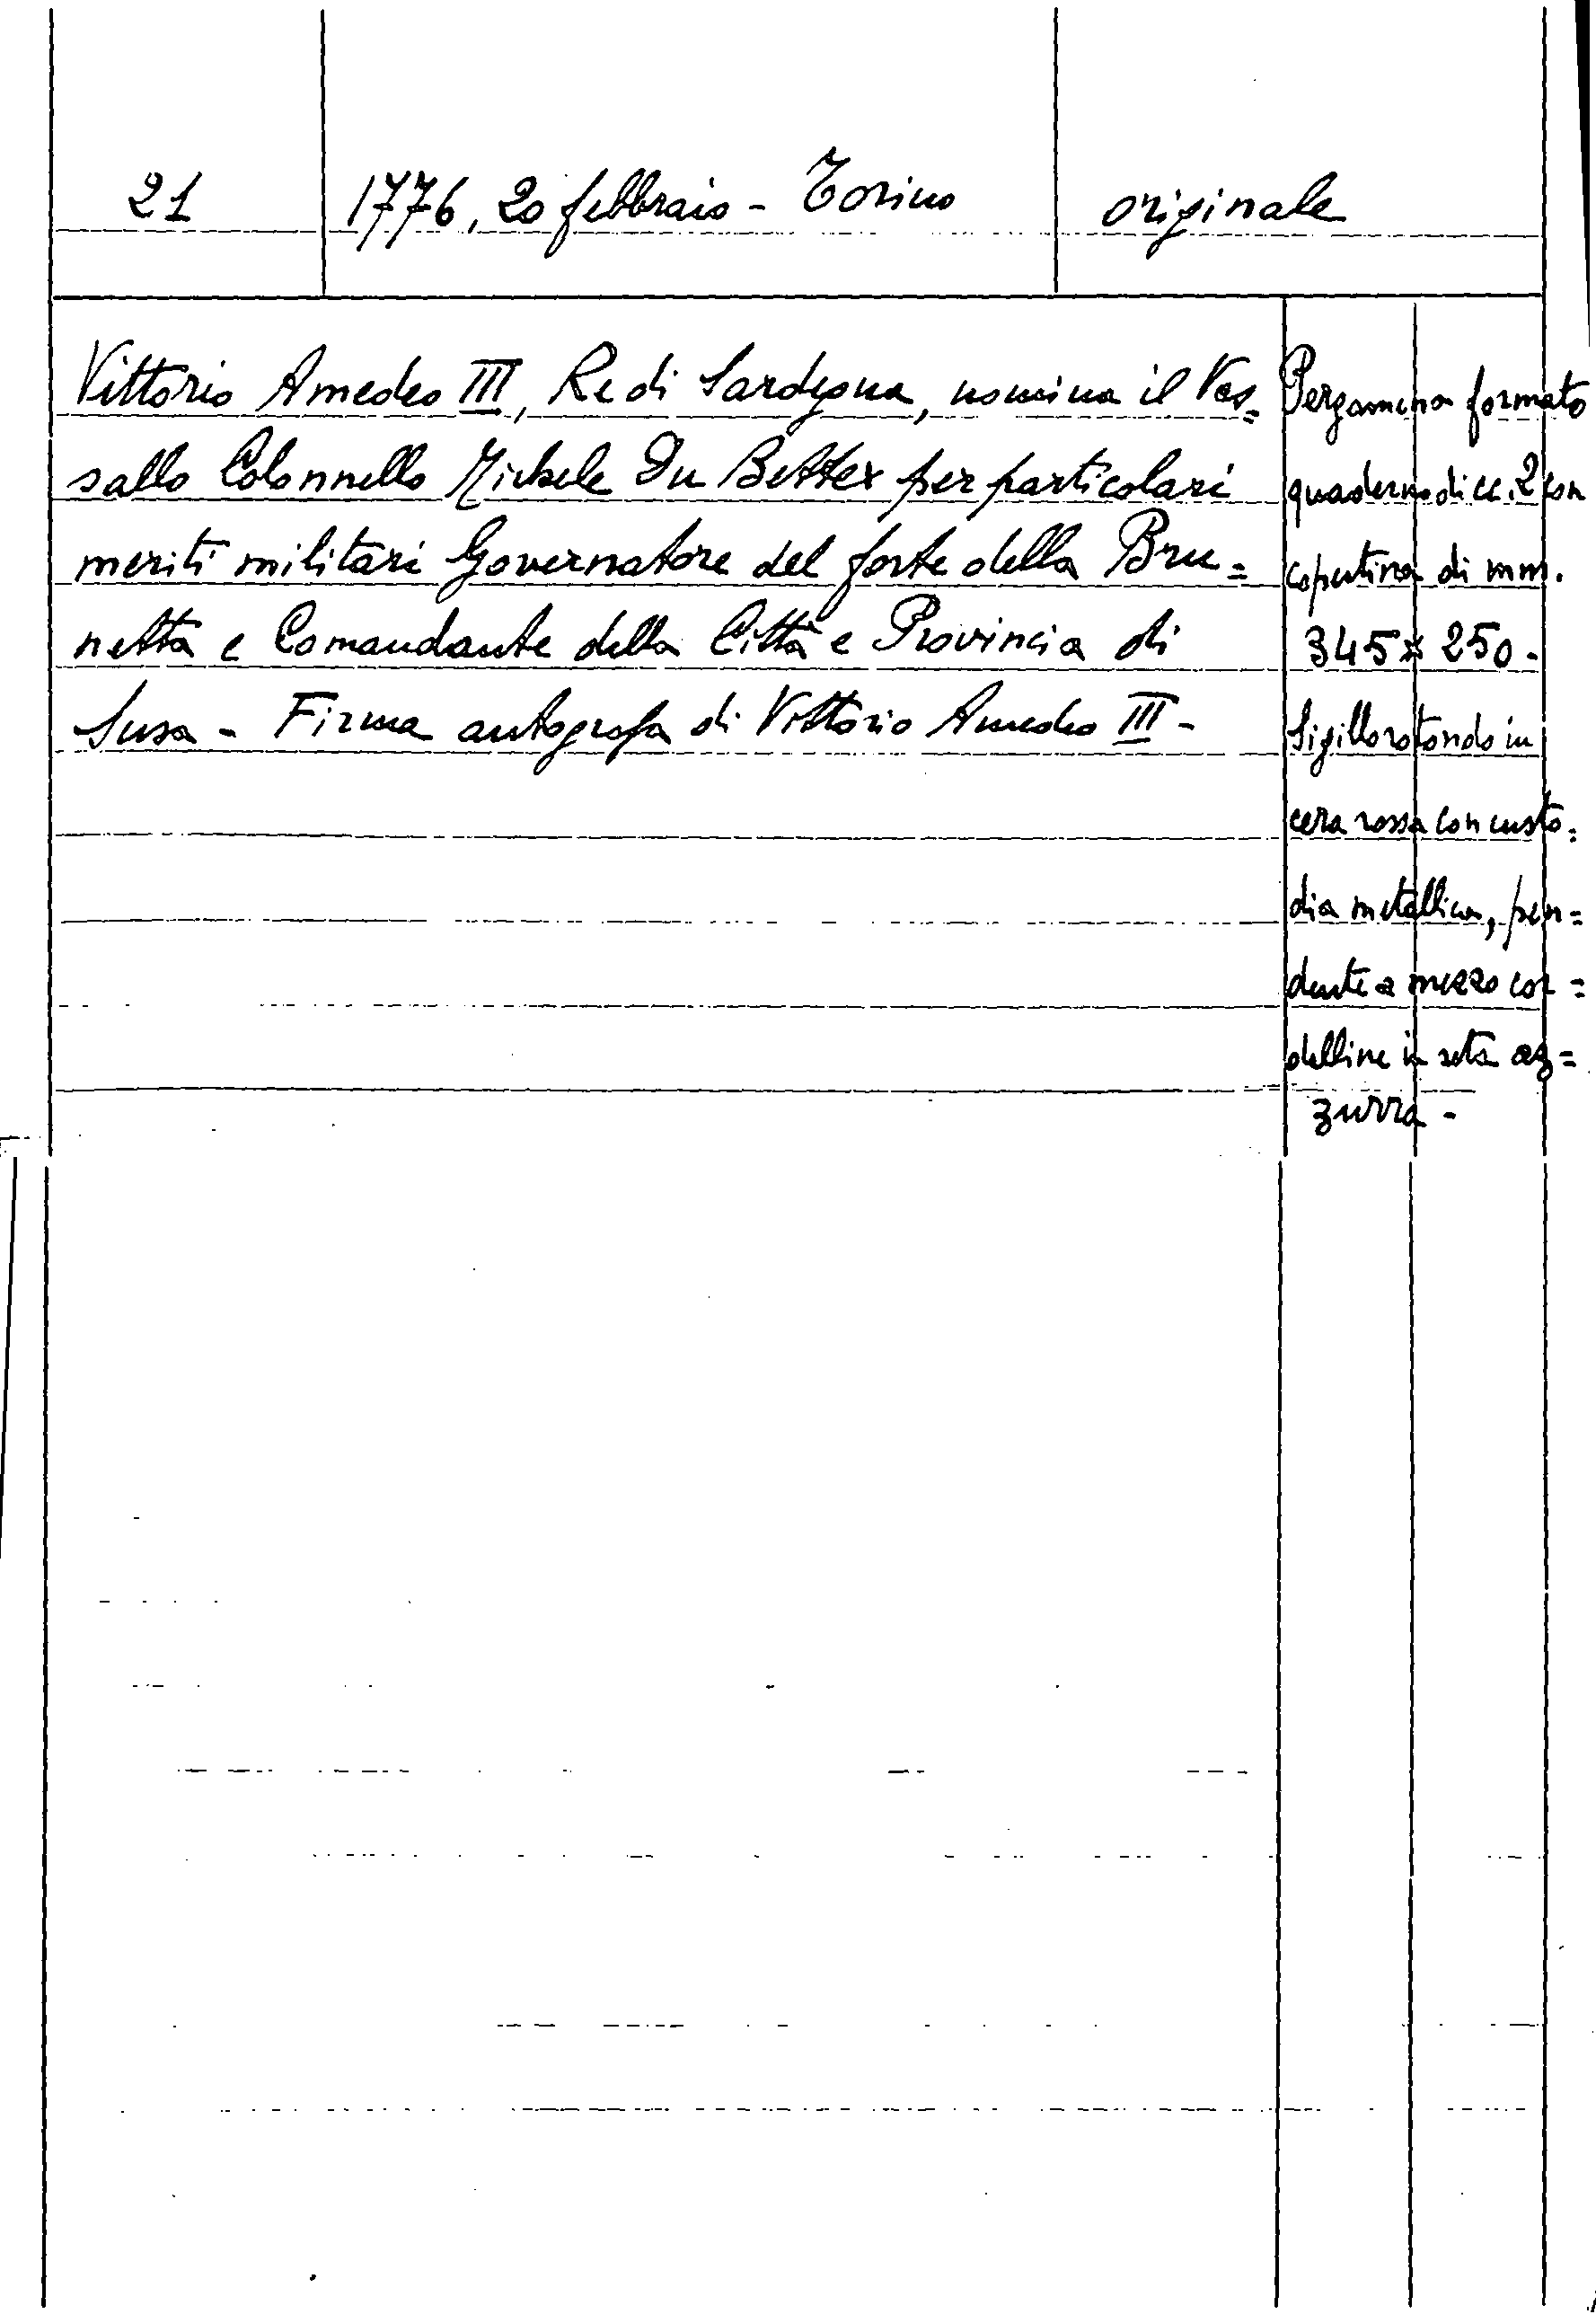 21
1776, 20 febbraio - Torino
originale
Vittorio Amedeo III, Re di Sardegna, nomina il Vas=
sallo Colonnello Michele Du Bettex per particolari
meriti militari Governatore del forte della Bru=
netta e Comandante della Città e Provincia di
Susa - Firma autografa di Vittorio Amedeo III -
Pergamena formato
quaderno di cc. 2 con
copertina di mm.
345 x 250 -
Sigillo rotondo in
cera rossa con custo=
dia metallica, pen=
dente a mezzo cor=
delline in seta az=
zurra -